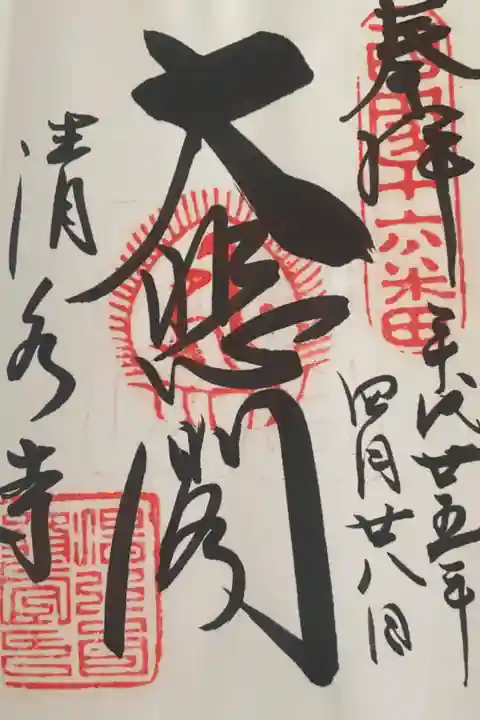 奉拝
西国十六番
平成廿五年
四月廿八日
大悲閣
清水寺